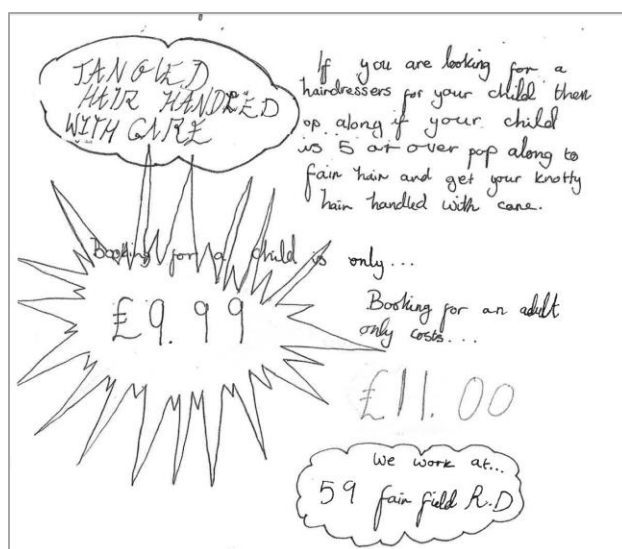 TANGLED
HAIR HANDLED
WITH CARE
If you are looking for a
hairdressers for your child then
op along if your child
is 5 or over pop along to
fair hair and get your knotty
hair handled with care.
Booking for a child is only...
£9.99
Booking for an adult
only costs...
£11.00
We work at...
59 fair field R.D